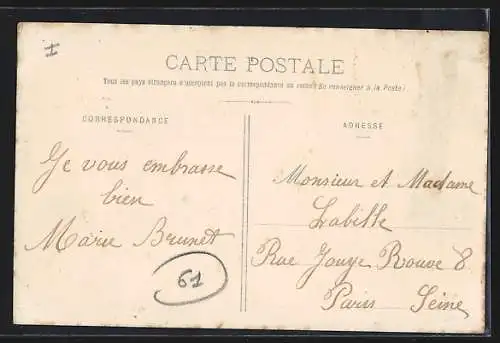 CARTE POSTALE
Tous les pays étrangers n'acceptent pas la correspondance au recto (Se renseigner à la Poste)
CORRESPONDANCE
ADRESSE
Je vous embrasse
bien
Marie Brunet
61
Monsieur et Madame
Labille
Rue Jouye Rouve 8
Paris Seine